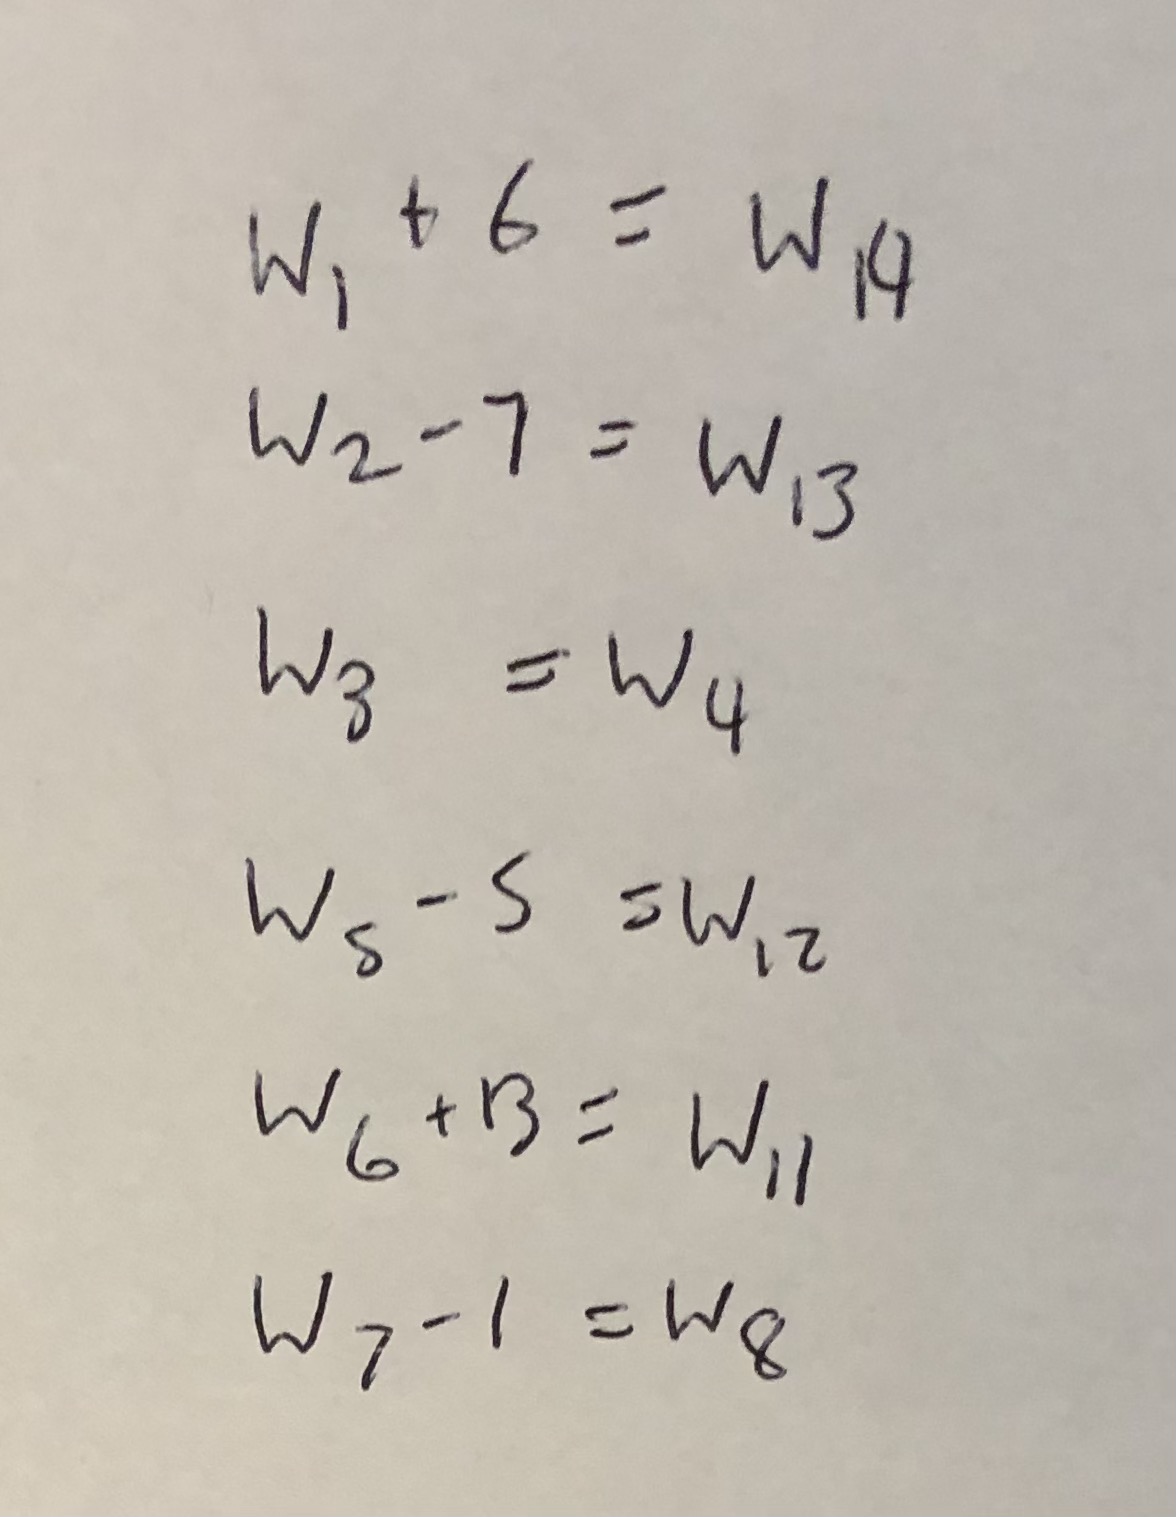 W₁ + 6 = W₁₄
W₂ - 7 = W₁₃
W₃ = W₄
W₅ - 5 = W₁₂
W₆ + 13 = W₁₁
W₇ - 1 = W₈